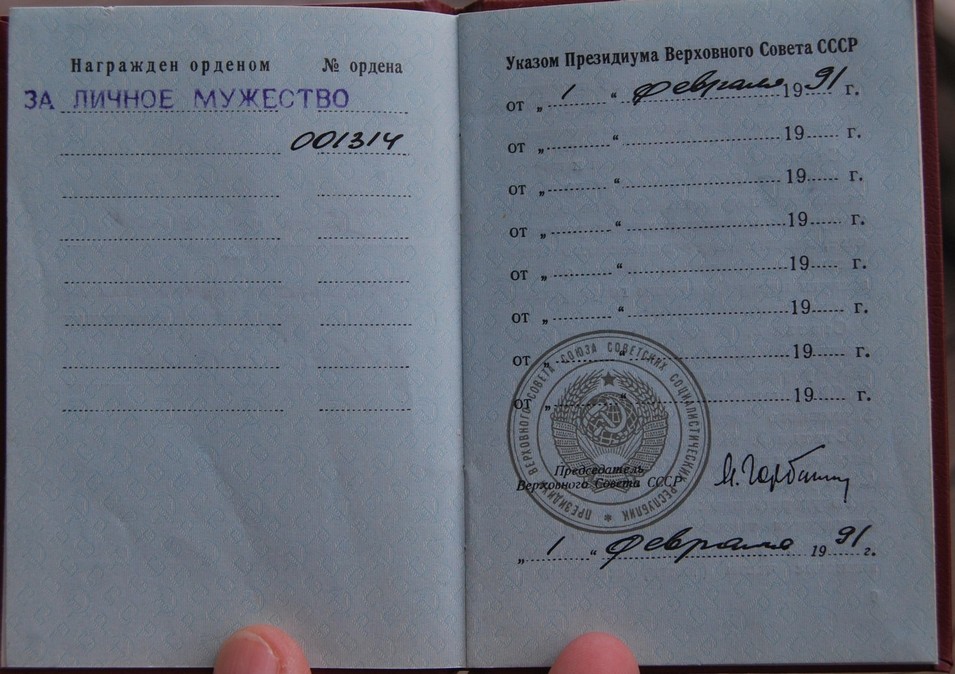 Награжден орденом № ордена
ЗА ЛИЧНОЕ МУЖЕСТВО
001314
Указом Президиума Верховного Совета СССР
от „ 1 “ февраля 1991 г.
от „ “ 19 г.
от „ “ 19 г.
от „ “ 19 г.
от „ “ 19 г.
от „ “ 19 г.
от „ “ 19 г.
от „ “ 19 г.
ПРЕЗИДИУМ ВЕРХОВНОГО СОВЕТА СОЮЗА СОВЕТСКИХ СОЦИАЛИСТИЧЕСКИХ РЕСПУБЛИК
Председатель
Верховного Совета СССР
„ 1 “ февраля 1991 г.